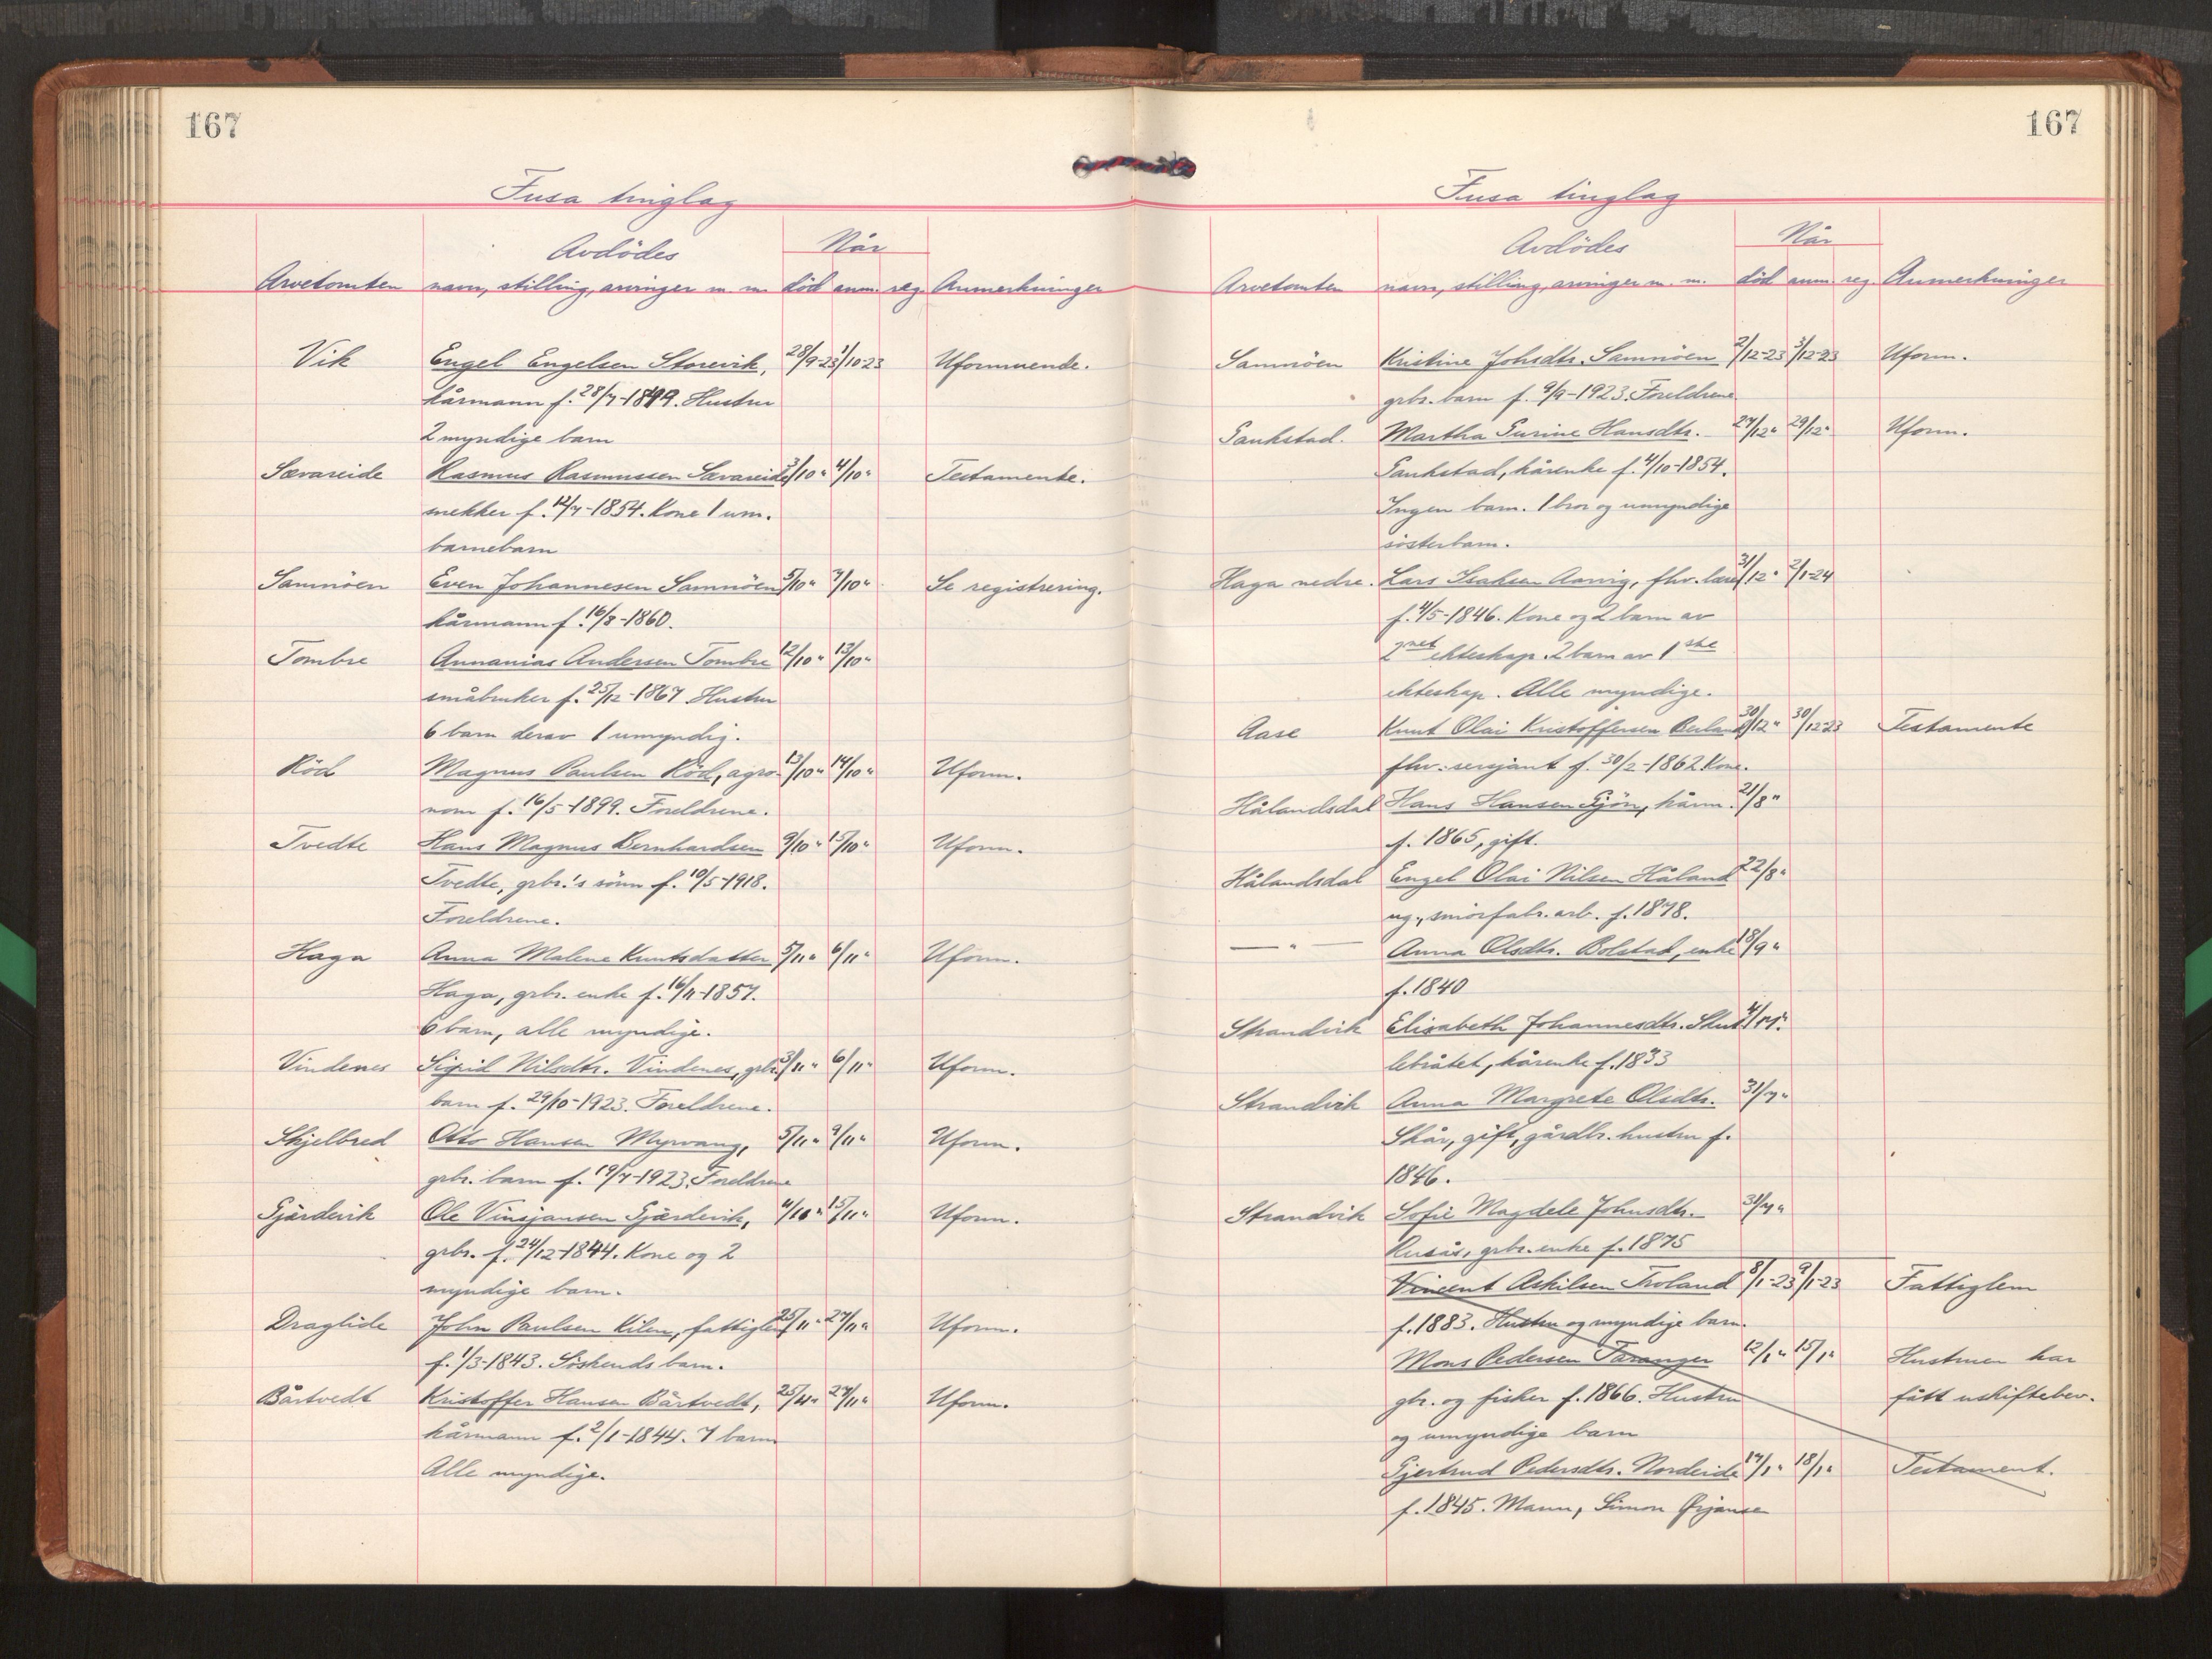 167
Fusa tinglag
Avdödes
Når
Arvetomten navn, stilling, arvinger m. m. död anm. reg. Anmerkninger
Vik Engel Engelsen Storevik, 28/9-23 1/10-23 Uformuende.
kårmann f. 28/7-1849. Hustru
2 myndige barn
Sævareide Rasmus Rasmussen Sævareide 3/10 " 4/10 " Testamente.
snekker f. 12/7-1854. Kone 1 um.
barnebarn
Samnöen Even Johannesen Samnöen 5/10 " 7/10 " Se registrering.
kårmann f. 16/8-1860.
Tombre Annanias Andersen Tombre 12/10 " 13/10 "
småbruker f. 25/12-1867 Hustru
6 barn derav 1 umyndig.
Röd Magnus Paulsen Röd, agro- 13/10 " 14/10 " Uform.
nom f. 16/5-1899. Foreldrene.
Tvedte Hans Magnus Bernhardsen 9/10 " 15/10 " Uform.
Tvedte, grbr.'s sönn f. 10/5-1918.
Foreldrene.
Haga Anna Malene Knutsdatter 5/11 " 6/11 " Uform.
Haga, grbr. enke f. 16/11-1857.
6 barn, alle myndige.
Vindenes Sigrid Nilsdtr. Vindenes, grbr. 3/11 " 6/11 " Uform.
barn f. 29/10-1923. Foreldrene.
Skjelbred Otto Hansen Myrvang, 5/11 " 9/11 " Uform.
grbr. barn f. 19/7-1923. Foreldrene
Gjærdevik Ole Vinsjansen Gjærdevik, 4/10 " 15/11 " Uform.
grbr. f. 24/12-1844. Kone og 2
myndige barn.
Draglide John Paulsen Kilen, fattiglem 25/11 " 27/11 " Uform.
f. 1/3-1843. Söskends barn.
Bårtvedt Kristoffer Hansen Bårtvedt, 25/11 " 27/11 " Uform.
kårmann f. 2/1-1844. 7 barn
Alle myndige.
167
Fusa tinglag
Avdödes
Når
Arvetomten navn, stilling, arvinger m. m. död anm. reg. Anmerkninger
Samnöen Kristine Johsdtr. Samnöen 2/12-23 3/12-23 Uform.
grbr. barn f. 9/9-1923. Foreldrene
Sankstad. Martha Surine Hansdtr. 27/12 " 29/12 " Uform.
Sankstad, kårenke f. 4/10-1854.
Ingen barn. 1 bror og umyndige
sösterbarn.
Haga nedre. Lars Isaksen Aarvig, fhv. lærer 31/12 " 2/1-24
f. 4/5-1846. Kone og 2 barn av
2net ekteskap. 2 barn av 1ste
ekteskap. Alle myndige.
Aase Knut Olai Kristoffersen Berland 30/12 " 30/12-23 Testamente
fhv. sersjant f. 30/2-1862. Kone.
Hålandsdal Hans Hansen Gjön, kårm. 21/8 "
f. 1865, gift.
Hålandsdal Engel Olai Nilsen Håland 22/8 "
ug., smörfabr. arb. f. 1878.
— " — Anna Olsdtr. Bolstad, enke 18/9 "
f. 1840
Strandvik Elisabeth Johannesdtr. Skut
letråtet, kårenke f. 1833
Strandvik Anna Margrete Olsdtr. 31/7 "
Skår, gift, gårdbr. hustru f.
1846.
Strandvik Sofie Magdele Johnsdtr. 31/7 "
Rusås, grbr. enke f. 1875
Vincent Askilsen Troland 8/1-23 9/1-23 Fattiglem
f. 1883. Hustru og myndige barn.
Mons Pedersen Taranger 12/1 " 15/1 " Hustruen har
gbr. og fisker f. 1866. Hustru fått uskiftebev.
og umyndige barn
Gjertrud Pedersdtr. Nordeide 17/1 " 18/1 " Testament.
f. 1845. Mann, Simon Ørjansen